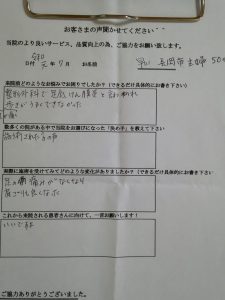 お客さまの声聞かせてください
当院のより良いサービス、品質向上の為、ご協力をお願い致します。
日付 令和 元年 9月 お名前
来院前どのようなお悩みでお困りでしたか？（できるだけ具体的にお書き下さい）
整形外科で足底けん膜炎と言われ
歩きがうまくできなかった
数多くの院がある中で当院をお選びになった「決め手」を教えて下さい
実際に施術を受けてみてどのような変化がありましたか？（できるだけ具体的にお書き下さい）
足の痛みがなくなり
肩こりも良くなった
これから来院される患者さんに向けて、一言お願いします！
いいです
ご協力ありがとうございました。